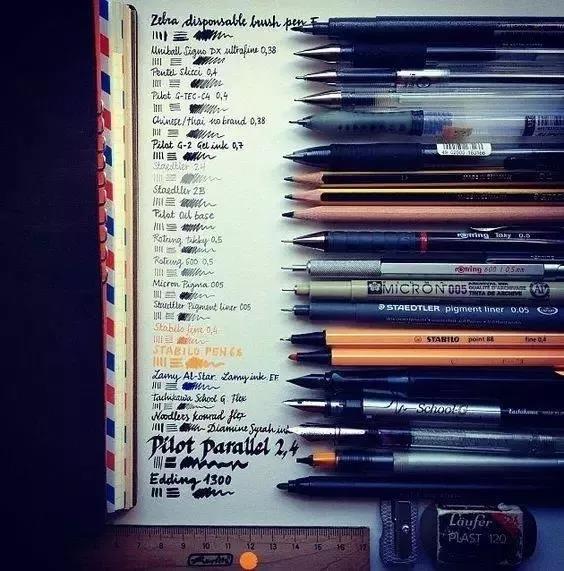 Zebra disposable brush pen F
Uniball Signo DX ultrafine 0,38
Pentel Slicci 0,4
Pilot G-TEC-C4 0,4
Chinese/Thai no brand 0,38
Pilot G-2 Gel ink 0,7
Staedtler 2H
Staedtler 2B
Pilot Oil base
Rotring tikky 0,5
rotring Tikky 0.5
Rotring 600 0,5
rotring 600 | 0,5mm
Micron Pigma 005
MICRON 005
Staedtler Pigment liner 005
STAEDTLER pigment liner 0.05
Stabilo fine 0,4
STABILO point 88 fine 0,4
STABILO PEN 68
Lamy Al-Star. Lamy ink. EF
Tachikawa School G. Flex
School G
Noodlers Konrad flex
Diamine Syrah ink
Pilot Parallel 2,4
Edding 1300
Läufer
PLAST 120
6 7 8 9 10 11 12 13 14 15 16 17